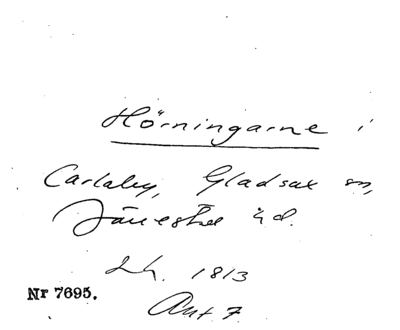 Hörningarne i
Carlaby, Gladsax sn,
Järrestad hd.
1813
Nr 7695.
Ant 7